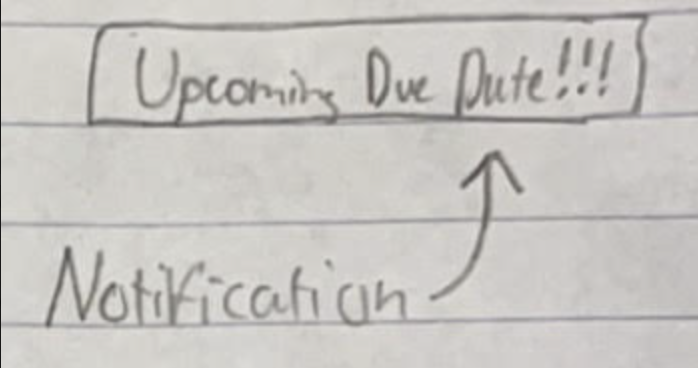 Upcoming Due Date!!!
Notification